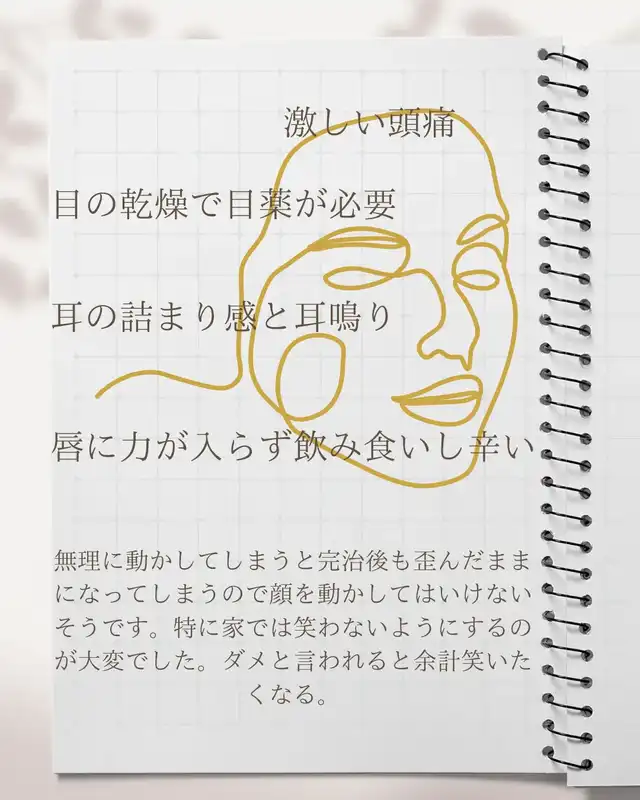 激しい頭痛
目の乾燥で目薬が必要
耳の詰まり感と耳鳴り
唇に力が入らず飲み食いし辛い
無理に動かしてしまうと完治後も歪んだまま
になってしまうので顔を動かしてはいけない
そうです。特に家では笑わないようにするの
が大変でした。ダメと言われると余計笑いた
くなる。